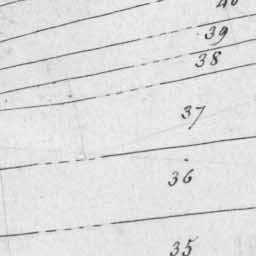 40
39
38
37
36
35